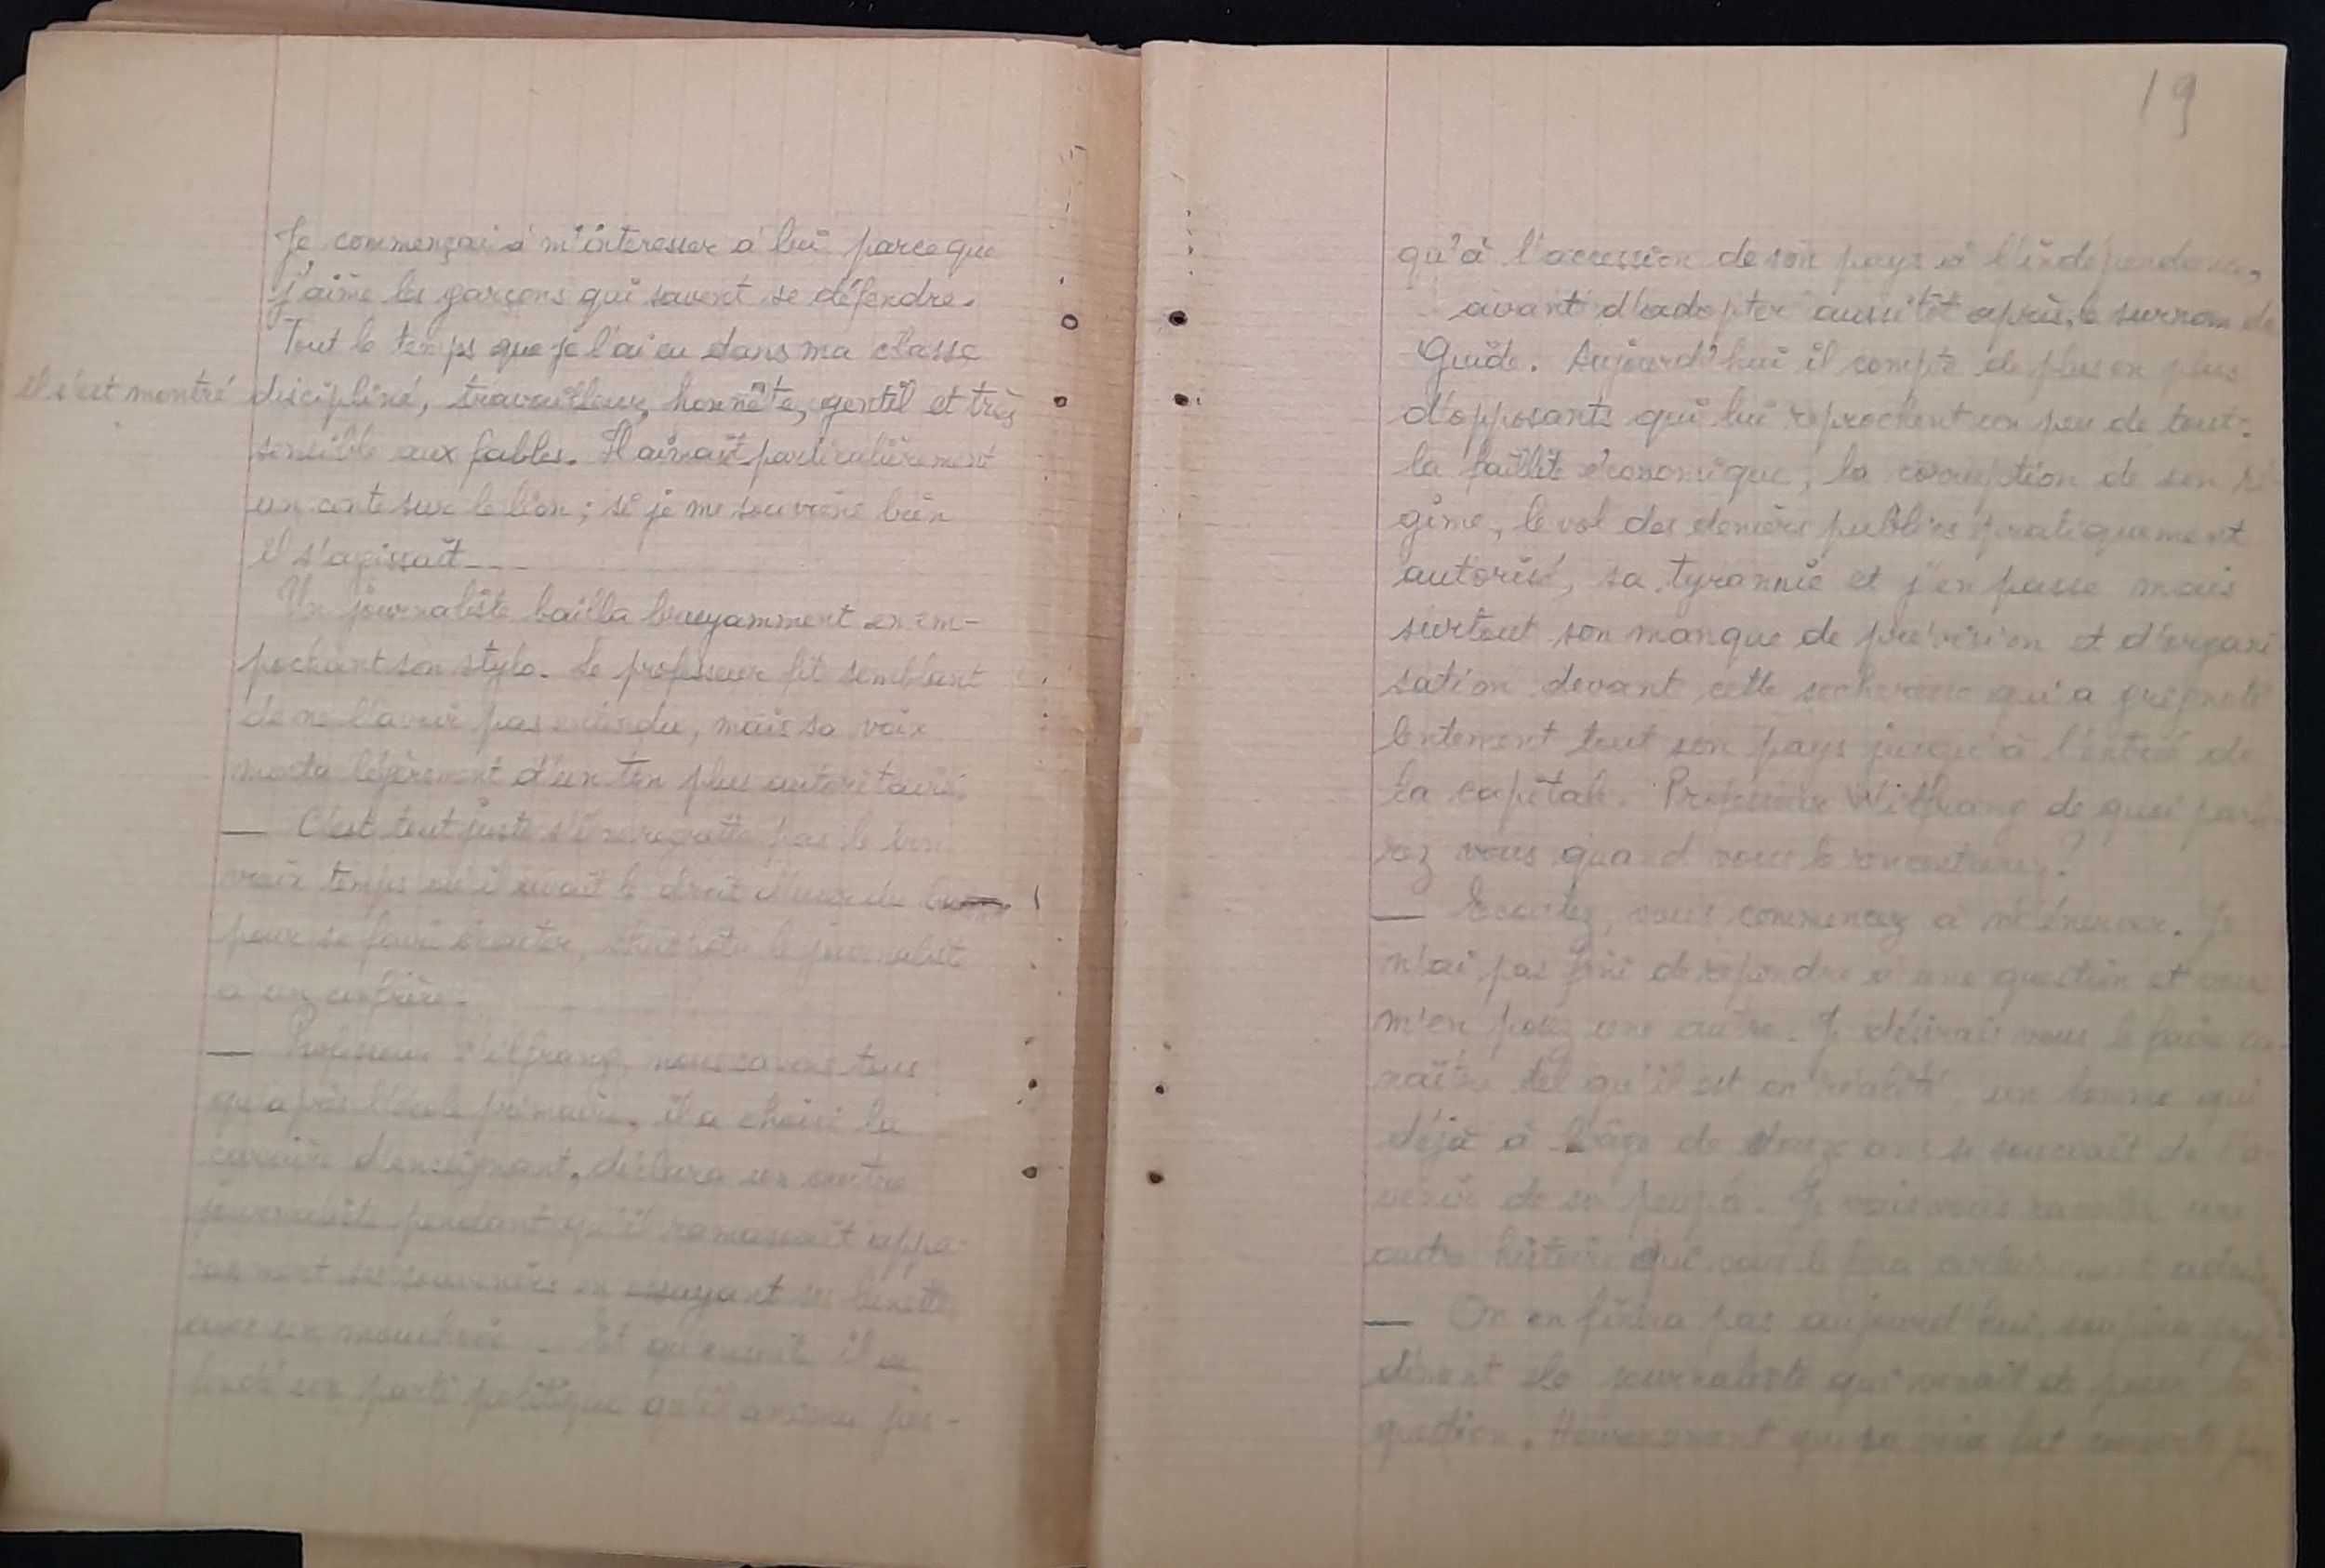 Je commençai à m'intéresser à lui parce que
j'aime les garçons qui savent se défendre.
Tout le temps que je l'ai eu dans ma classe
il s'est montré discipliné, travailleur, honnête, gentil et très
sensible aux fables. Il aimait particulièrement
un conte sur le lion ; si je me souviens bien
il s'agissait...
Un journaliste bailla bruyamment en em-
pochant son stylo. Le professeur fit semblant
de ne l'avoir pas entendu, mais sa voix
monta légèrement d'un ton plus autoritaire.
— C'est tout juste s'il ne regrette pas le bon
vieux temps où il avait le droit d'user du
pour se faire écouter, chuchota le journaliste
à un confrère.
— Professeur Wilfrang, nous savons tous
qu'après l'école primaire, il a choisi la
carrière d'enseignant, déclara un autre
journaliste pendant qu'il ramassait
ses souvenirs en essuyant ses lunettes
avec un mouchoir. Et qu'ensuite il a
fondé un parti politique qu'il anima jus-
19
qu'à l'accession de son pays à l'indépendance,
avant d'adopter aussitôt après, le surnom de
Guide. Aujourd'hui il compte de plus en plus
d'opposants qui lui reprochent un peu de tout :
la faillite économique, la corruption de son ré-
gime, le vol des deniers publics pratiquement
autorisé, sa tyrannie et j'en passe mais
surtout son manque de prévision et d'organi
sation devant cette secheresse qui a grignoté
lentement tout son pays jusqu'à l'entrée de
la capitale. Professeur Wilfrang de quoi parle-
rez vous quand vous le rencontrerez ?
— Ecoutez, vous commencez à m'énerver. Je
n'ai pas fini de répondre à une question et vous
m'en posez une autre. Je désirais vous le faire con-
naître tel qu'il est en réalité, un homme qui
déjà à l'âge de douze ans se souciait de l'a-
venir de son peuple. Je vais vous raconter une
autre histoire qui vous le fera certainement
— On en finira pas aujourd'hui, soupira
le journaliste qui venait de poser la
question. Heureusement que sa voix fut couverte